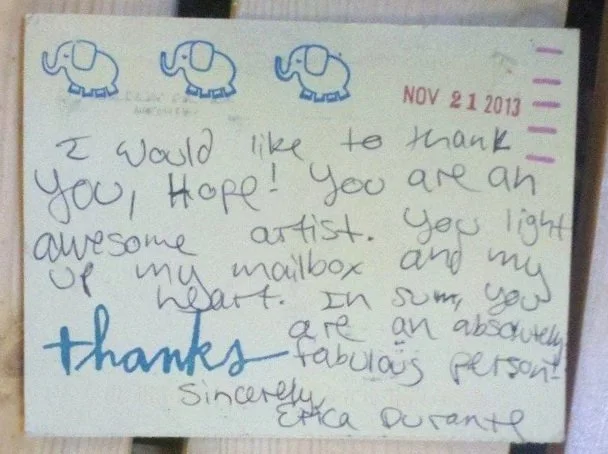 NOV 21 2013
I would like to thank
you, Hope! You are an
awesome artist. You light
up my mailbox and my
heart. In sum, you
are an absolutely
thanks fabulous person!
Sincerely,
Erica Durante